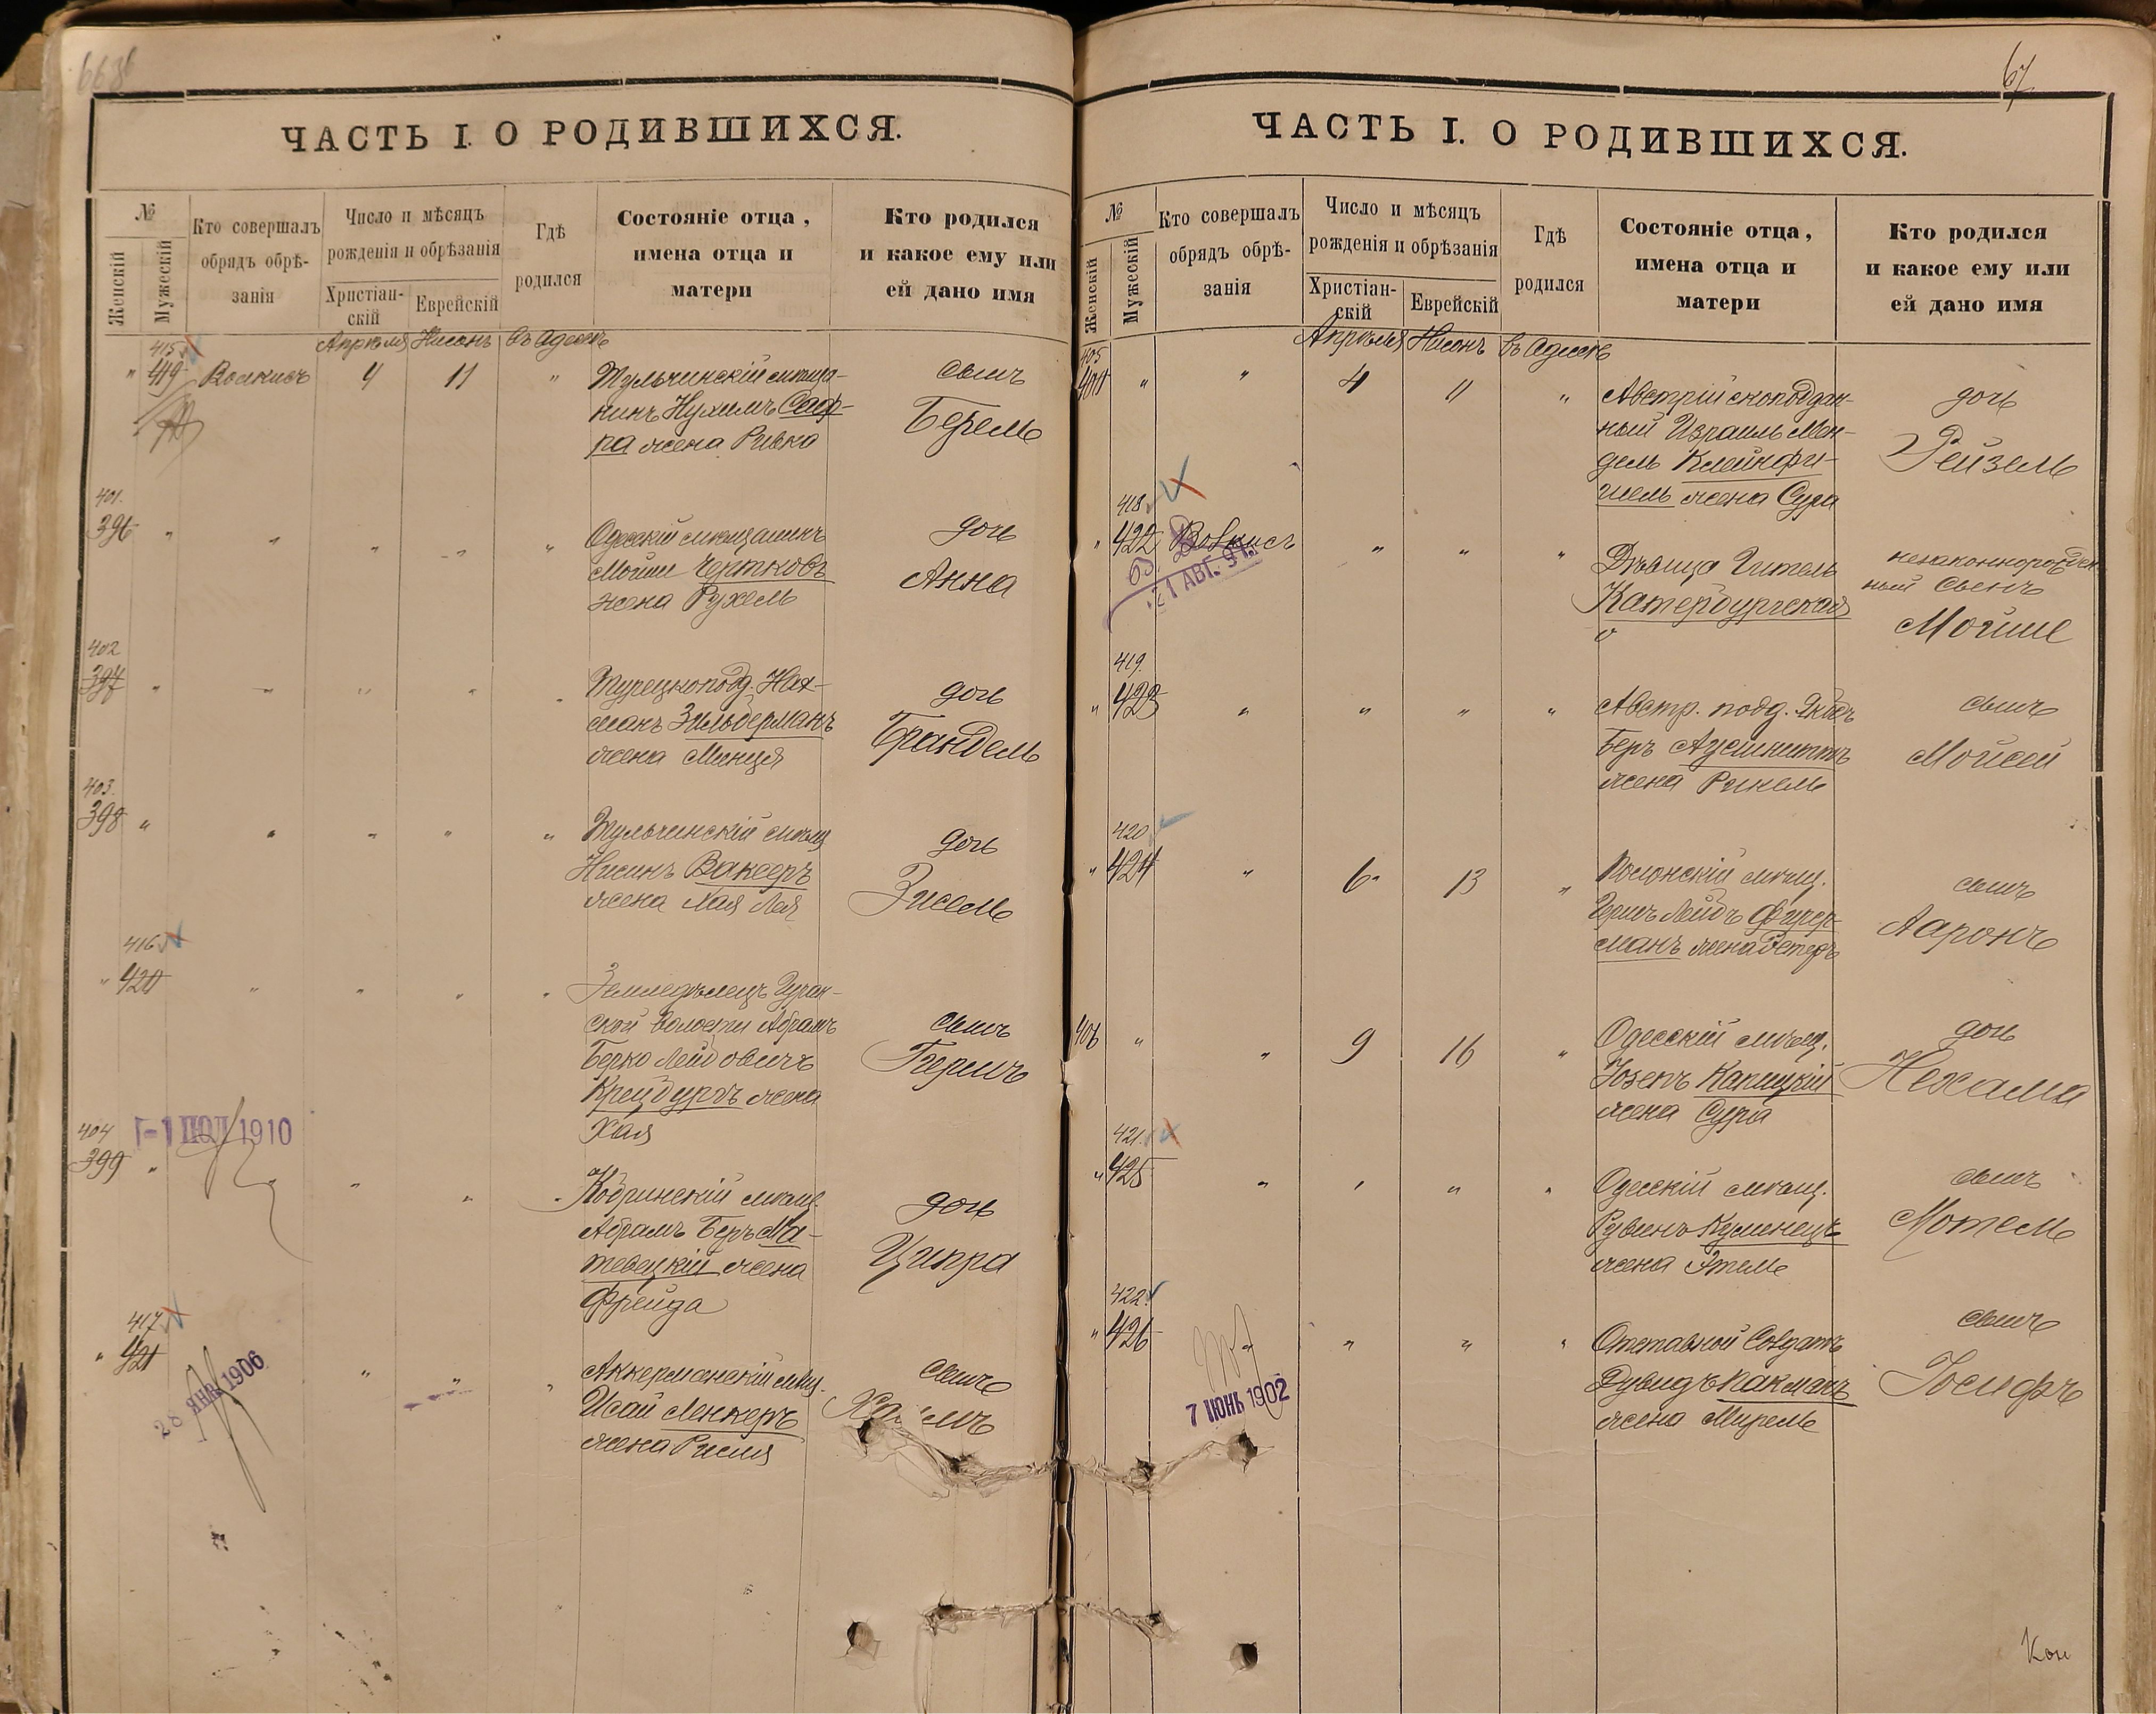 ЧАСТЬ I. О РОДИВШИХСЯ.
№
Женскій
Мужескій
Кто совершалъ
обрядъ обрѣ-
занія
Число и мѣсяцъ
рожденія и обрѣзанія
Христіан-
скій
Еврейскій
Гдѣ
родился
Состояніе отца,
имена отца и
матери
Кто родился
и какое ему или
ей дано имя
Апрѣля Нисонъ въ Одессѣ
415
" 419 Волкисъ 4 11 "
Тульчинскій мѣща-
нинъ Нухимъ Сап-
ра жена Ривка
сынъ
Берель
401.
396 " " " " "
Одесскій мѣщанинъ
Мойше Чертковъ
жена Рухель
дочь
Анна
402
397 " " " " "
Турецкопод. Нах-
манъ Зильберманъ
жена Минця
дочь
Брандель
403.
398 " " " " "
Тульчинскій мѣщ
Нисинъ Ваксеръ
жена Хая Лея
дочь
Зисель
416
" 420 " " " "
Земледѣлецъ
ской волости Абрамъ
Берко Лейбовичъ
жена
Хая
сынъ
Гершъ
1910
404
399 " " " " "
Кобринскій мѣщ.
Абрамъ Беръ Ма-
тевецкій жена
Фрейда
дочь
Ципра
417
" 421 " " "
28 ЯНВ 1906
Аккерманскій мѣщ.
Исай Ленкеръ
жена Рисия
сынъ
67
ЧАСТЬ I. О РОДИВШИХСЯ.
№
Женскій
Мужескій
Кто совершалъ
обрядъ обрѣ-
занія
Число и мѣсяцъ
рожденія и обрѣзанія
Христіан-
скій
Еврейскій
Гдѣ
родился
Состояніе отца,
имена отца и
матери
Кто родился
и какое ему или
ей дано имя
Апрѣля Нисонъ въ Одессѣ
405
400 " " 4 11 "
Австрійскоподдан-
ный Израиль Мен-
дель Клейнфи-
шель жена Сура
дочь
Рейзель
418
" 422 Волкисъ " " "
1 АВГ. 91.
Дѣвица Гитель
Катербургская
незаконнорожден
ный сынъ
Мойше
419.
" 423 " " " "
Австр. подд.
Беръ Аусшниттъ
жена Рикель
сынъ
Мойсей
420
" 424 " 6 13 "
мѣщ.
Гершъ Лейбъ Фурер-
манъ жена
сынъ
Ааронъ
406 " " 9 16 "
Одесскій мѣщ.
Іозепъ Капицкій
жена Сура
дочь
Нехама
421.
" 425 " " " "
Одесскій мѣщ.
Рувинъ Куминецъ
жена Этель
сынъ
Мотель
422
" 426 " " " "
7 ІЮНЬ 1902
Отставной Солдатъ
Дувидъ Какманъ
жена Мирель
сынъ
Іосифъ